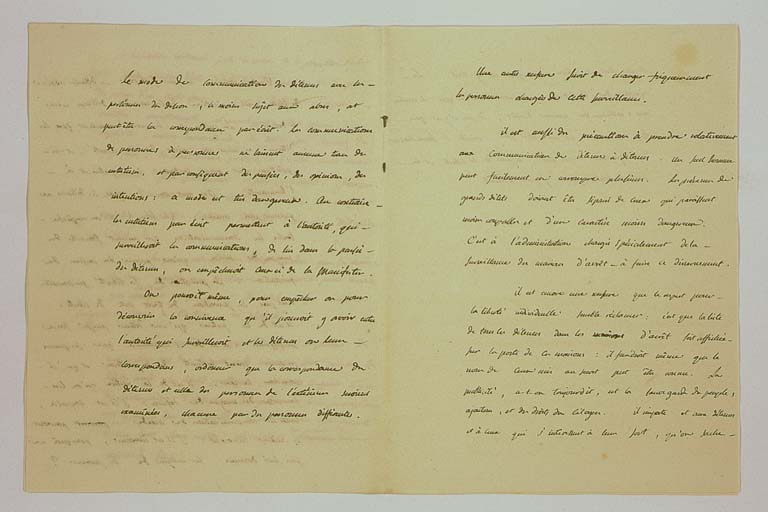 Le mode de communication des détenus avec les
personnes du dehors, le moins sujet aux abus, est
peut être la correspondance par écrit. les communications
de personnes à personnes ne laissent aucune trace de
entretien, et par conséquent des pensées, des opinions, des
intentions : ce mode est très dangereux. Au contraire
les entretiens par écrit permettent à l'autorité, qui
surveilleroit les communications, de lire dans la pensée
des détenus, ou empêcheroit ceux ci de la manifester.
On pourroit même, pour empêcher ou pour
découvrir la connivence qu'il pourroit y avoir entre
l'autorité qui surveilleroit et les détenus ou leurs
correspondans, ordonner que la correspondance des
détenus et celle des personnes de l'extérieur seroient
examinées, chacune par des personnes différentes.
Une autre mesure seroit de changer fréquemment
les personnes chargées de cette surveillance.
il est aussi des précautions à prendre relativement
aux communications de détenus à détenus. Un seul homme
peut facilement en corrompre plusieurs. les prévenus de
grands délits doivent être séparés de ceux qui paroissent
moins coupables et d'un caractère moins dangereux.
C'est à l'administration chargée spécialement de la
surveillance des maisons d'arrêt à faire ce discernement.
il est encore une mesure que le respect pour
la liberté individuelle semble réclamer : c'est que la liste
de tous les détenus dans les maisons d'arrêt soit affichée
sur la porte de ces maisons : il faudroit même que le
nom de ceux mis au secret peut être connu. La
publicité, a-t-on toujours dit, est la sauvegarde du peuple,
ajoutons, et des droits des citoyens. il importe et aux détenus
et à ceux qui s'intéressent à leur sort, qu'on sache